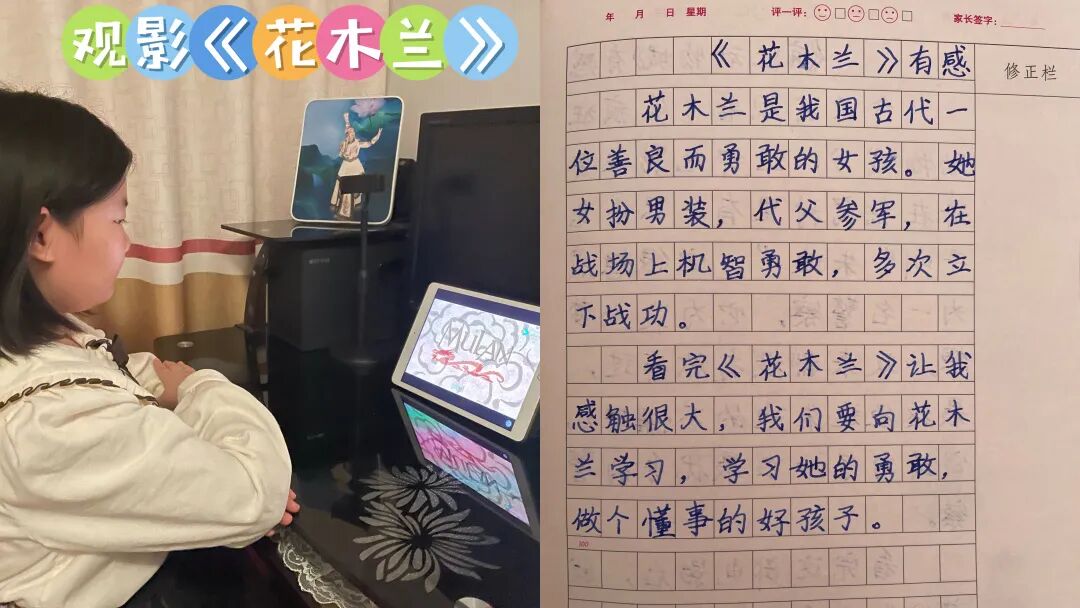 观影《花木兰》
MULAN
年 月 日 星期 评一评： 家长签字：
修正栏
《花木兰》有感
花木兰是我国古代一
位善良而勇敢的女孩。她
女扮男装，代父参军，在
战场上机智勇敢，多次立
下战功。
看完《花木兰》让我
感触很大，我们要向花木
兰学习，学习她的勇敢，
做个懂事的好孩子。
100